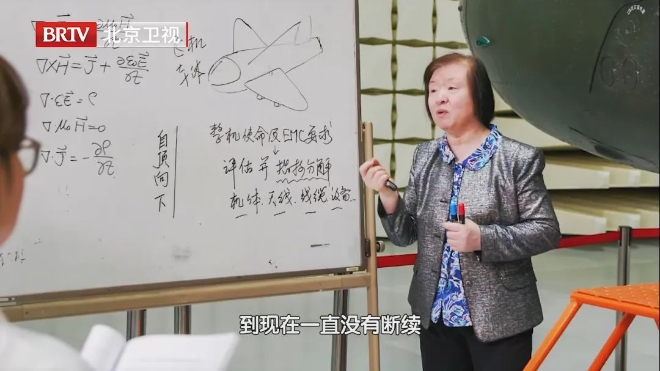 BRTV 北京卫视
飞机
∇×H⃗=J⃗+∂ε₀E⃗/∂t
∇·εE⃗=ρ
∇·μ₀H⃗=0
∇·J⃗=-∂ρ/∂t
自顶向下
整机使命及EMC要求
评估并指标分解
机体.天线.线缆.设备
到现在一直没有断续